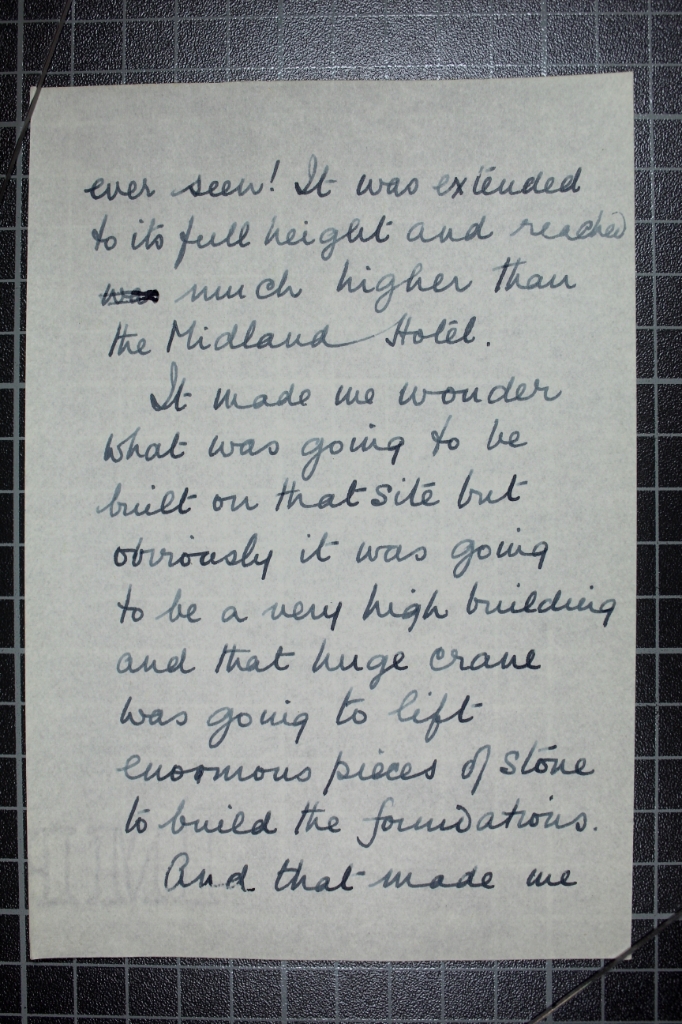 ever seen! It was extended
to its full height and reached
was much higher than
the Midland Hotel.
It made me wonder
what was going to be
built on that site but
obviously it was going
to be a very high building
and that huge crane
was going to lift
enormous pieces of stone
to build the foundations.
And that made me